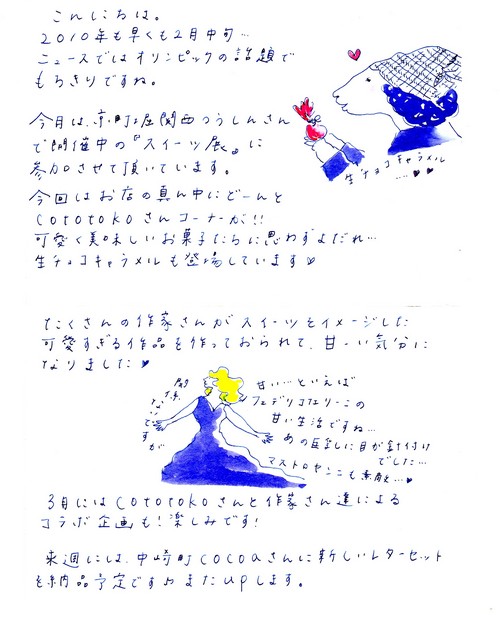 こんにちは。
2010年も早くも2月中旬…
ニュースではオリンピックの話題で
もちきりですね。
今月は、京町屋関西つうしんさん
で開催中の『スイーツ展』に
参加させて頂いています。
今回はお店の真ん中にどーんと
cototokoさんコーナーが!!
可愛く美味しいお菓子たちに思わずよだれ…
生チョコキャラメルも登場しています♥
生チョコキャラメル
……♥♥
たくさんの作家さんがスイーツをイメージした
可愛すぎる作品を作っておられて、甘ーい気分に
なりました♥
ですが
甘い…といえば
フェデリコフェリーニの
甘い生活ですね…
あの巨乳に目が釘付け
でした…
マストロヤンニも素敵…♥
3月にはcototokoさんと作家さん達による
コラボ企画も!楽しみです!
来週には、中崎町cocoaさんに新しいレターセット
を納品予定です♫またupします。